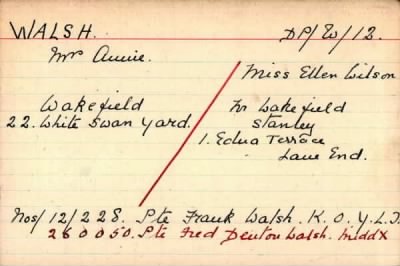 WALSH. DP/W/12.
Mrs Annie.
Miss Ellen Wilson
Wakefield
22. White Swan Yard.
Nr Wakefield
Stanley
1. Edna Terrace
Lane End.
Nos/ 12/228. Pte Frank Walsh. K.O.Y.L.I.
260050. Pte Fred Denton Walsh. Middx